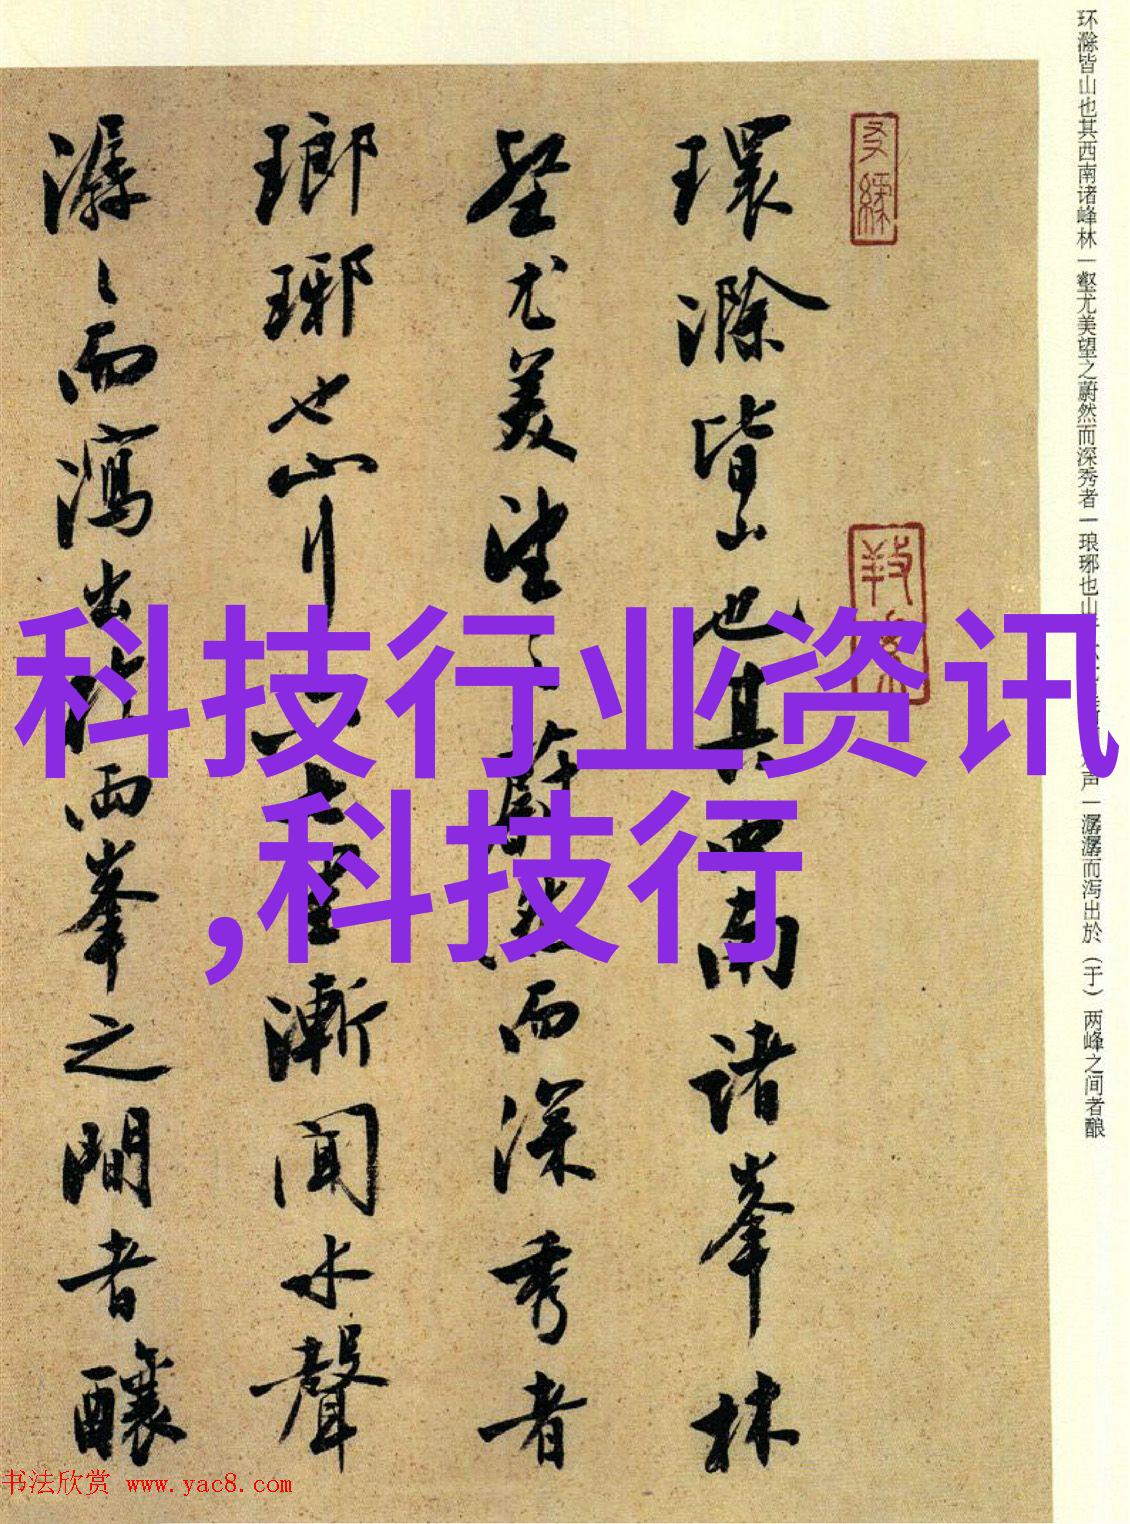 环滁皆山也其西南诸峰林一壑尤美望之蔚然而深秀者一琅琊也山
声一潺潺而泻出於（于）两峰之间者酿
環滁皆山也其西南諸峯林
壑尤美望之蔚然而深秀者
瑯琊也山行六七里漸聞水聲
潺〻而瀉出於兩峯之間者釀
科技行业资讯
,科技行
书法欣赏 www.yac8.com